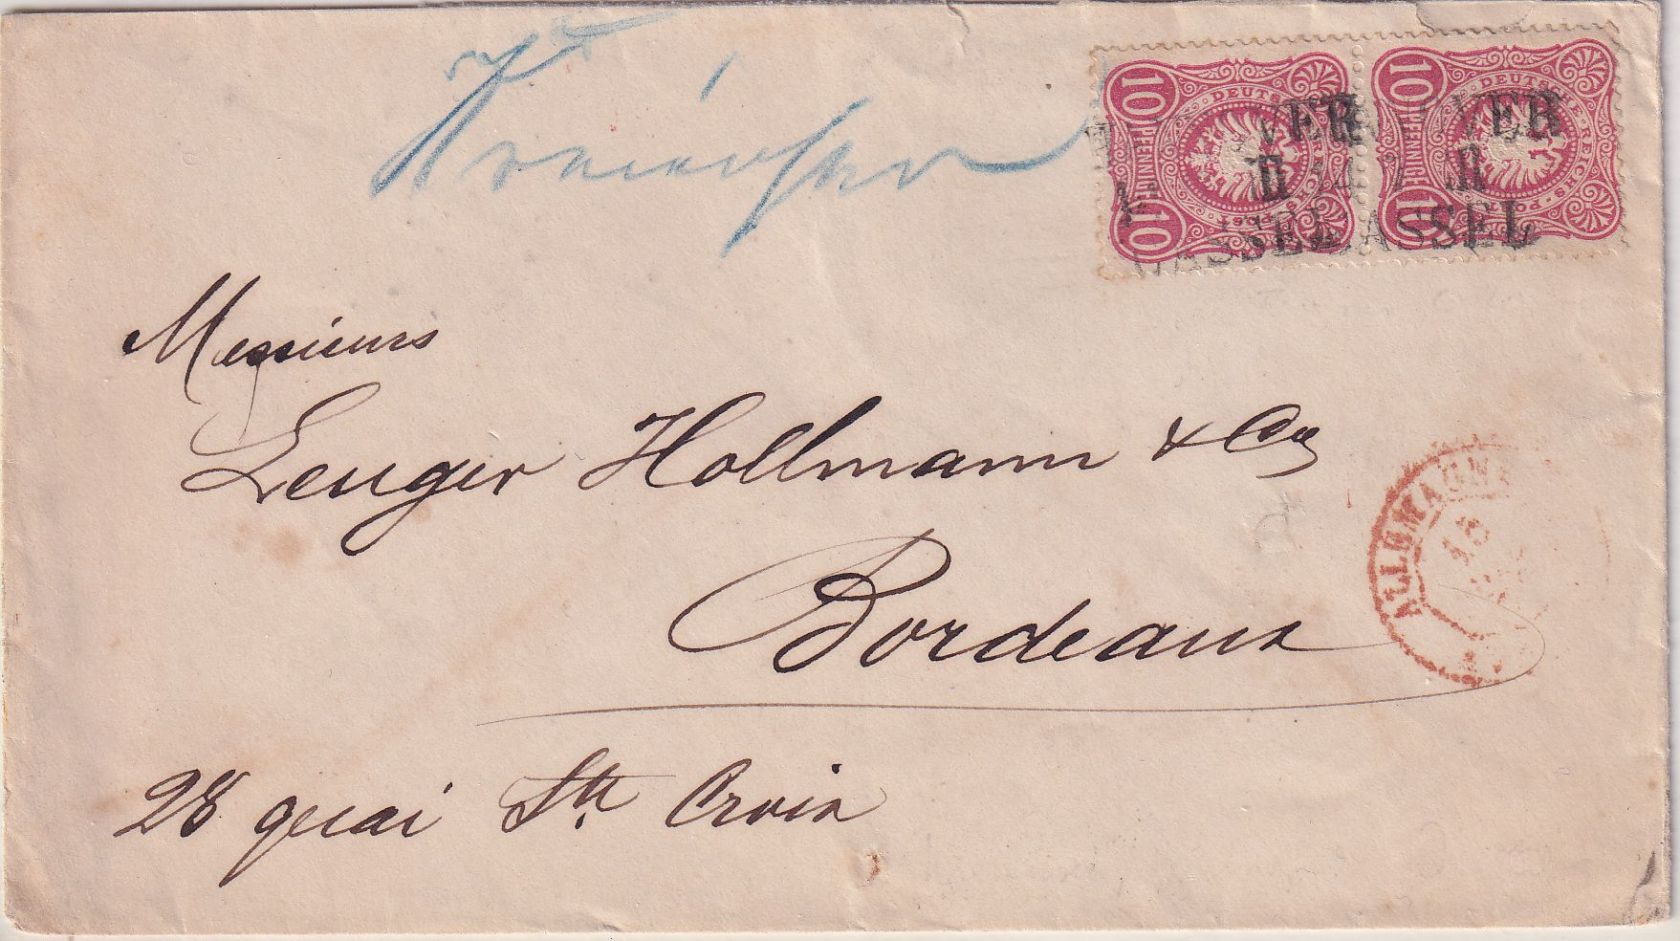 10 PFENNIG 10 DEUTSCHE REICHS-POST
10 PFENNIG 10 DEUTSCHE REICHS-POST
CASSEL
CASSEL
Messieurs
Lenger Hollmann & Cie
Bordeaux
28 quai Ste Croix
ALLEMAGNE